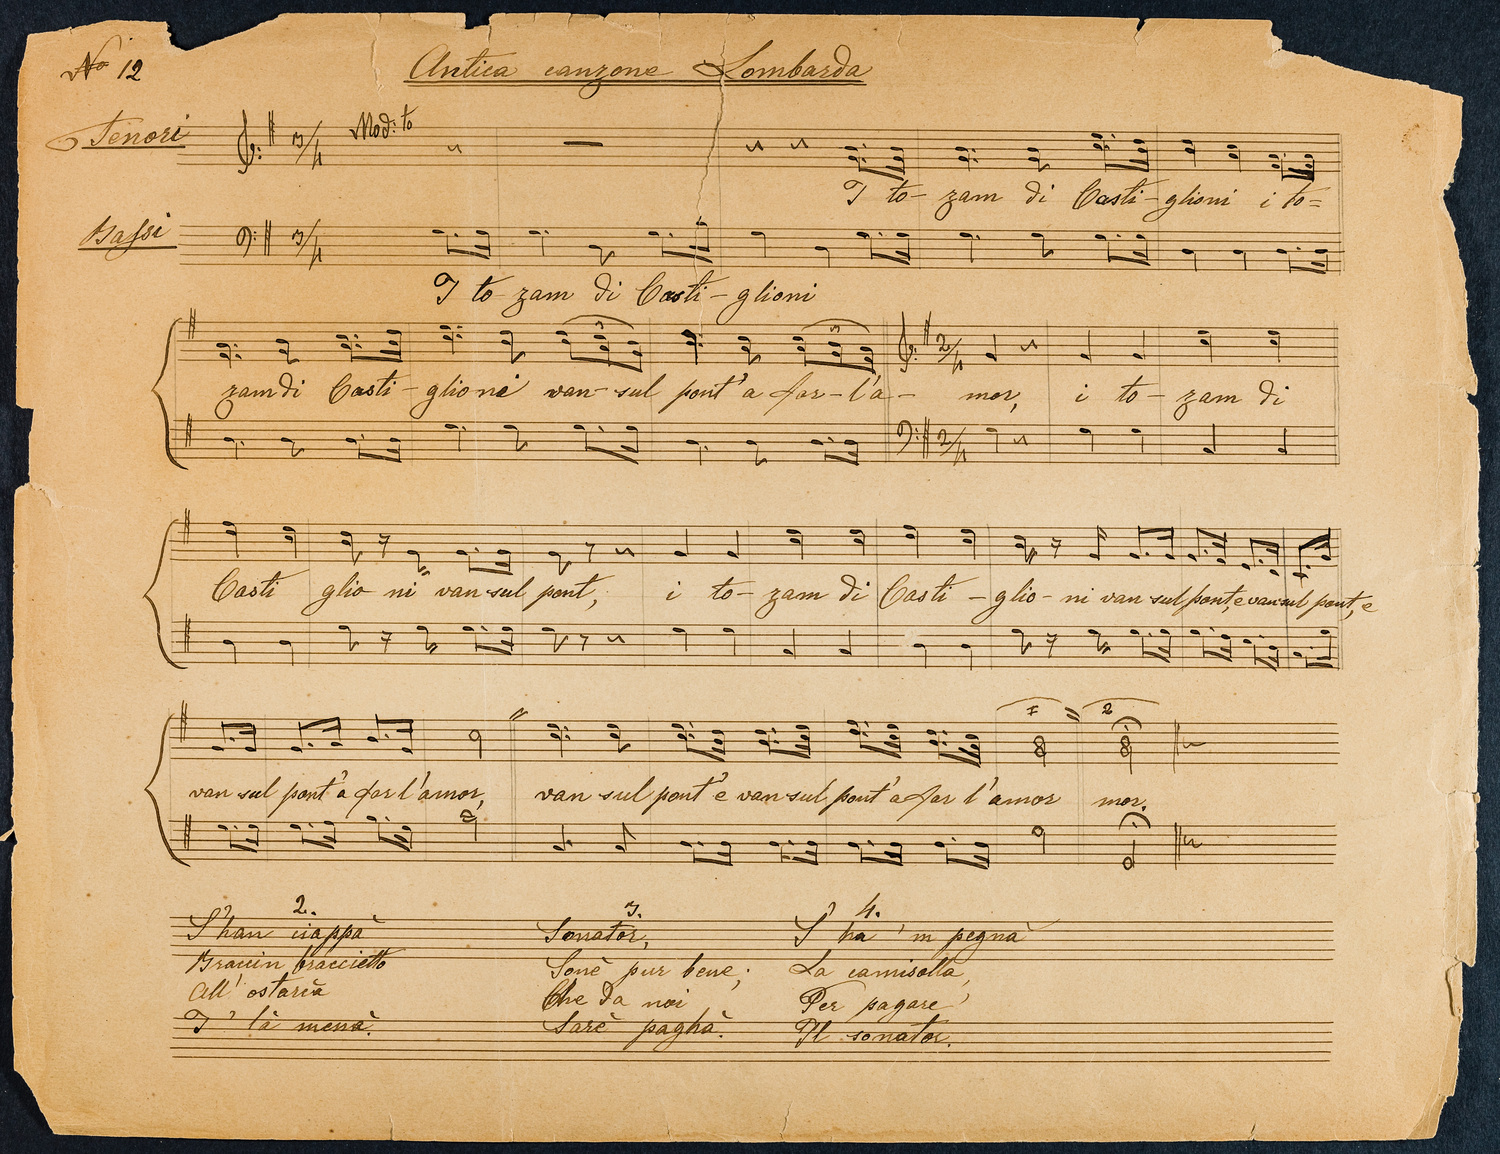 No 12
Antica canzone Lombarda
Tenori
Mod:to
3/4
I to- zam di Casti-glioni i to=
Bassi
3/4
I to-zam di Casti-glioni
2/4
zam di Casti-glioni van-sul pont'a far-l'a- mor, i to-zam di
2/4
Casti glio ni van sul pont, i to-zam di Casti-glio-ni van sul pont, e van sul pont, e
1 2
van sul pont'a far l'amor, van sul pont'e van sul pont'a far l'amor mor.
2.
S'han ciappà
Braccin braccietto
All' ostaria
I' là menà.
3.
Sonator,
Sonè pur bene;
Che da noi
Sarè paghà.
4.
S' ha 'm pegnà
La camisolla,
Per pagare'
Il sonator.